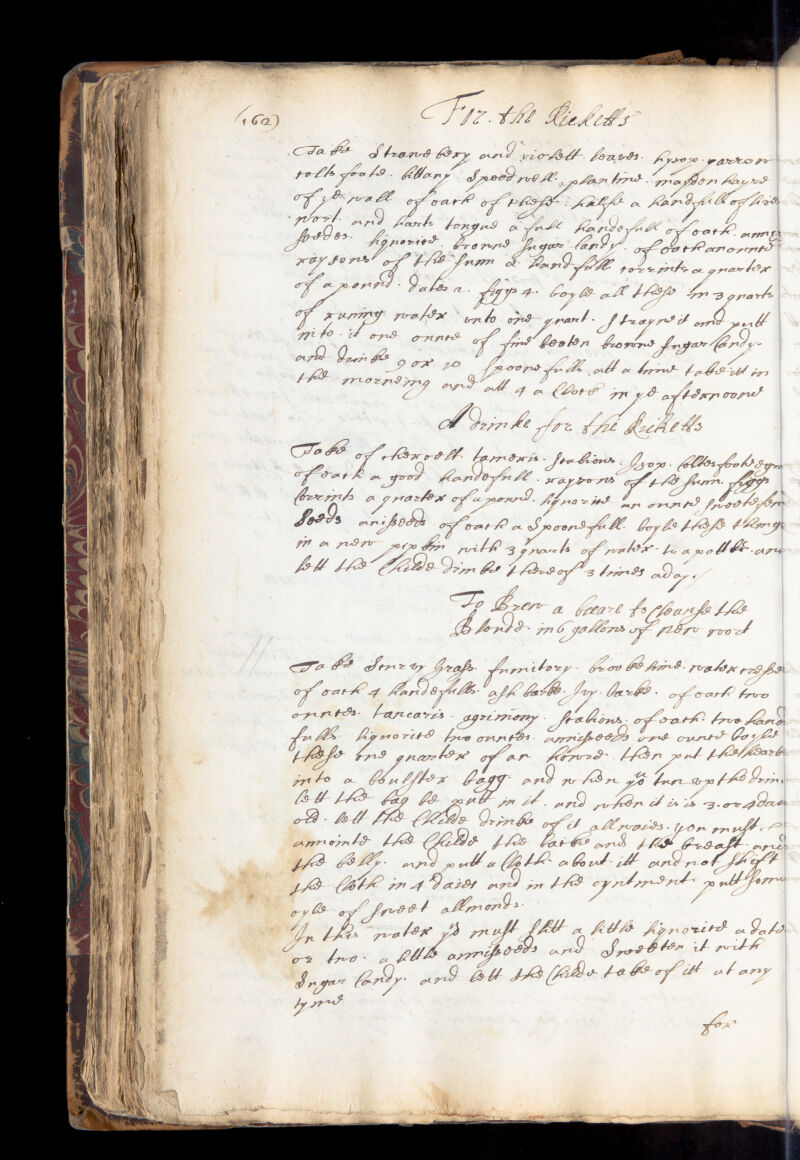 (162)
For the Ricketts
Take Strawbery and violett leaves hysop yarrow
coltsfoote bittany Speedwell plantine maydenhayre
of ye wall of each of these halfe a handfull of liver
wort and harts tongue a full handefull of each anny
seedes liquorice browne Sugar Candy of each an ounce
raysons of the sunn a handfull corrints a quarter
of a pound dates 2 figgs 4 boyle all these in 3 quarts
of runing water unto one quart Strayne it and putt
into it one ounce of fine beaten browne Sugar Candy
and drinke 9 or 10 Spoonefulls att a time take itt in
the morneing and att 4 a Clock in ye afternoone
A drinke for the Ricketts
Take of chervell tameris Scabious Isop Coltesfoote
of each a good handefull raysons of the sunn figgs
Corrints a quarter of a pound liquorice an ounce Sweete fen
Seeds aniseeds of each a Spoonefull boyle these things
in a new pipkin with 3 quarts of water to a pottle and
lett the Childe drinke thereof 3 times a day
To Brew a beare to Cleanse the
Bloude in 6 gallons of new wort
Take Scurvy Grass fumitory brookelime watercresse
of each 4 handefulls ash barke Ivy barke of each two
ounces tamaris agrimony Scabious of each two hand
fulls liquorice two ounces anniseeds one ounce boyle
these one quarter of an howre then put the hearbs
into a boulster bagg and when you tun upp the drin
lett the bag be putt in it and when it is 3 or 4 daies
old lett the Childe drinke of it allwaies you must
annointe the Childe the backe and the breast and
the belly and putt a Cloth about itt and not shift
the Cloth in 4 daies and in the oyntment putt some
oyle of sweet allmonds
In this water you must slitt a little liquorice a date
or two a little anniseeds and Sweeten it with
Sugar Candy and lett the Childe take of itt at any
tyme
for